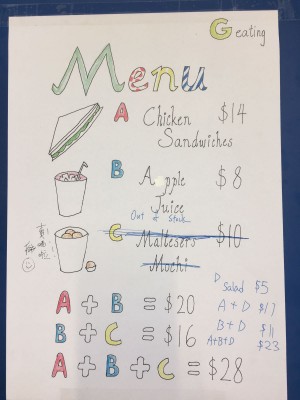 G eating
Menu
A Chicken $14
Sandwiches
B Apple $8
Juice
Out of Stock
C Maltesers $10
Mochi
D
Salad $5
A + B = $20
A + D $17
B + C = $16
B + D $11
A+B+D $23
A + B + C = $28